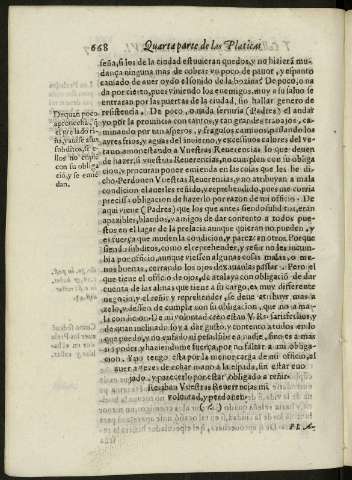 668 Quarta parte de las Platicas
seña, si los de la ciudad estuvieran quedos, y no hiziera mu-
dança ninguna mas de cobrar vn poco de pauor, y espanto
cansado de auer oydo el sonido de la bozina? De poco, o na
da por cierto, pues viniendo los enemigos, muy a su saluo se
entrarán por las puertas de la ciudad, sin hallar genero de
resistencia. De poco, o nada seruiria (Padres) el andar
yo por la prouincia con tantos, y tan grandes trabajos, ca-
minando por tan asperos, y fragosos caminos, passando los
ayres frios, y aguas del inuierno, y excessiuos calores del ve-
rano amonestando a Vuestras Reuerencias lo que deuen
de hazer, si vuestras Reuerencias, no cumplen con su obliga
cion, y procuran poner emienda en las cosas que les he di-
cho. Perdonen Vuestras Reuerencias, y no atribuyan a mala
condicion el auerles reñido, y reprehendido, pues me corria
precissa obligacion de hazerlo por razon de mi oficio. De
aqui viene (Padres) que los que antes siendo subditos, eran
apazibles, blandos, y amigos de dar contento a todos pues-
tos en el lugar de la prelacia aunque quieran no pueden, y
es fuerça que muden la condicion, y parezcan otros. Porque
siendo subditos, como el reprehender, y reñir no les incum-
bia por oficio, aunque viessen algunas cosas malas, o me-
nos buenas, cerrando los ojos dexauanlas passar. Pero el
que tiene el oficio de ojos, de atalaya con obligacion de dar
cuenta de las almas que tiene a su cargo, es muy differente
negocio, y el reñir y reprehender, se deue atribuyr mas a
zelo, y desseo de cumplir con su obligacion, que no a ma-
la condicion. De mi voluntad creo estan V. Rs. satisfechos, y
de quan inclinado soy a dar gusto, y contento a todos en lo
que puedo, y no enfado ni pesadumbre a nadie, sino es a mas
no poder, y haziendome fuerça, por no faltar a mi obliga-
cion. Y yo tengo esta por la menor carga de mi oficio, el
auer a vezes de echar mano a la espada, sin estar eno
jado, y parecerlo por estar obligado a reñir.
Reciban Vuestras Reuerencias mi
voluntad, y perdonen.
(?)
PLA-
De quan poco
aprouecha, q̃
el prelado ri-
ña, y auise a sus
subditos, si e-
llos no cumplẽ
con su obliga
ciõ, y se emiẽ
dan.